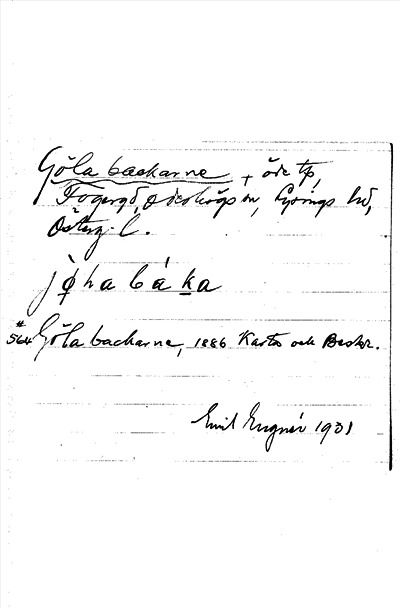 Göla backarne, öde tp,
Fogeryd, sn, Kyrings hd,
Österg. l.
jǫ̀ha báka
564 Göla backarne, 1886 Karta och Beskr.
Emil Engnér 1931